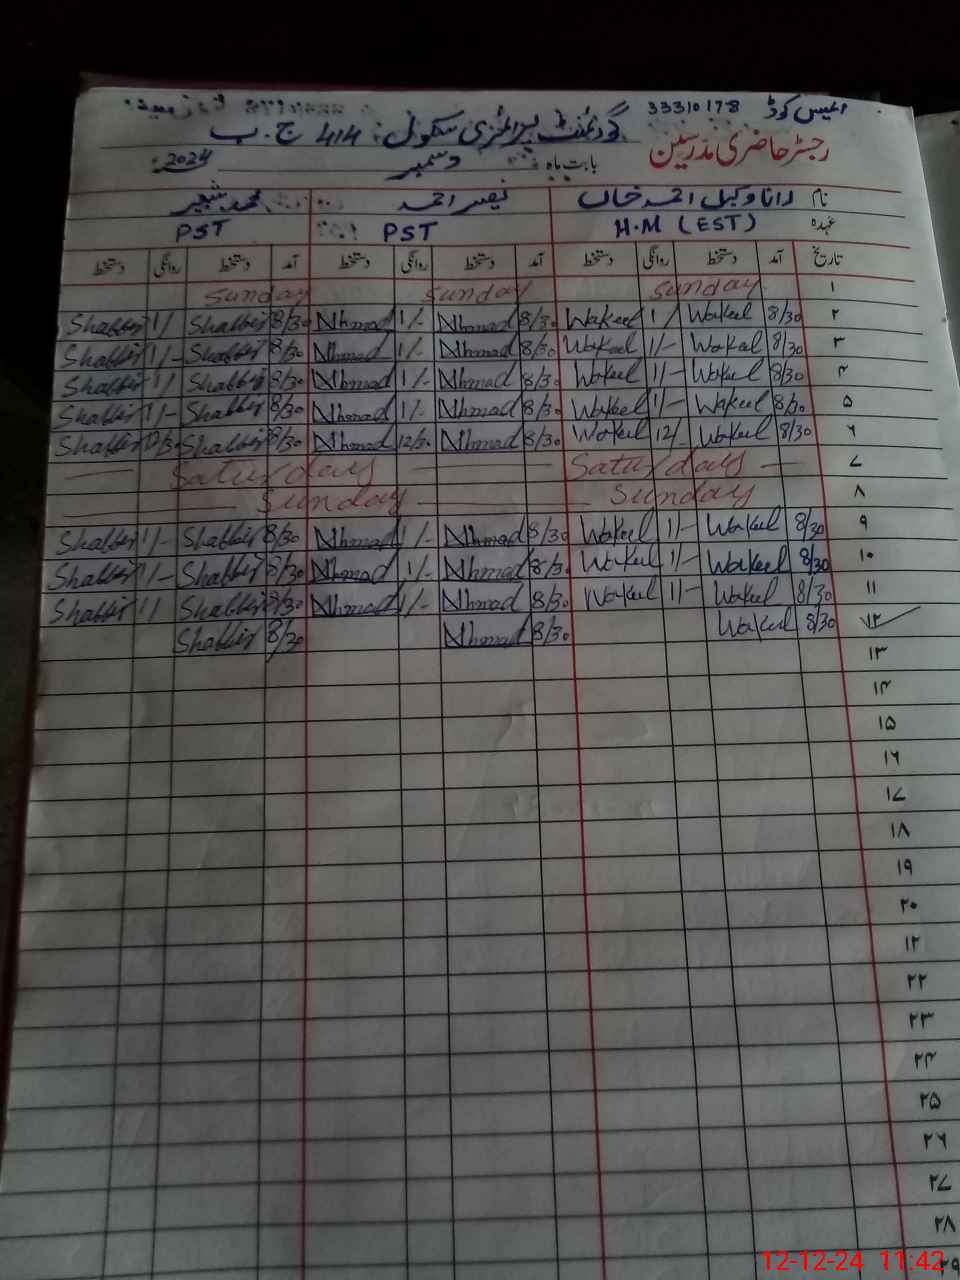 ایمس کوڈ 33310178
گورنمنٹ پرائمری سکول 414 ج۔ب
رجسٹر حاضری مدرسین بابت ماہ دسمبر 2024
نام رانا وکیل احمد خاں نصیر احمد محمد شبیر
عہدہ H.M (EST) PST PST
تاریخ آمد دستخط روانگی دستخط آمد دستخط روانگی دستخط آمد دستخط روانگی دستخط
۱ Sunday Sunday Sunday
۲ 8/30 Wakeel 1/ Wakeel 8/30 Nhmad 1/- Nhmad 8/30 Shabbir 1/ Shabbir
۳ 8/30 Wakeel 1/- Wakeel 8/30 Nhmad 1/- Nhmad 8/30 Shabbir 1/- Shabbir
۴ 8/30 Wakeel 1/- Wakeel 8/30 Nhmad 1/- Nhmad 8/30 Shabbir 1/ Shabbir
۵ 8/30 Wakeel 1/- Wakeel 8/30 Nhmad 1/- Nhmad 8/30 Shabbir 1/- Shabbir
۶ 8/30 Wakeel 12/ Wakeel 8/30 Nhmad 12/30 Nhmad 8/30 Shabbir Shabbir
۷ Saturday Saturday
۸ Sunday Sunday
۹ 8/30 Wakeel 1/- Wakeel 8/30 Nhmad 1/- Nhmad 8/30 Shabbir 1/- Shabbir
۱۰ 8/30 Wakeel 1/- Wakeel 8/30 Nhmad 1/- Nhmad 8/30 Shabbir 1/- Shabbir
۱۱ 8/30 Wakeel 1/- Wakeel 8/30 Nhmad 1/- Nhmad 8/30 Shabbir 1/ Shabbir
۱۲ 8/30 Wakeel 8/30 Nhmad 8/30 Shabbir
۱۳
۱۴
۱۵
۱۶
۱۷
۱۸
۱۹
۲۰
۲۱
۲۲
۲۳
۲۴
۲۵
۲۶
۲۷
۲۸
۲۹
12-12-24 11:42